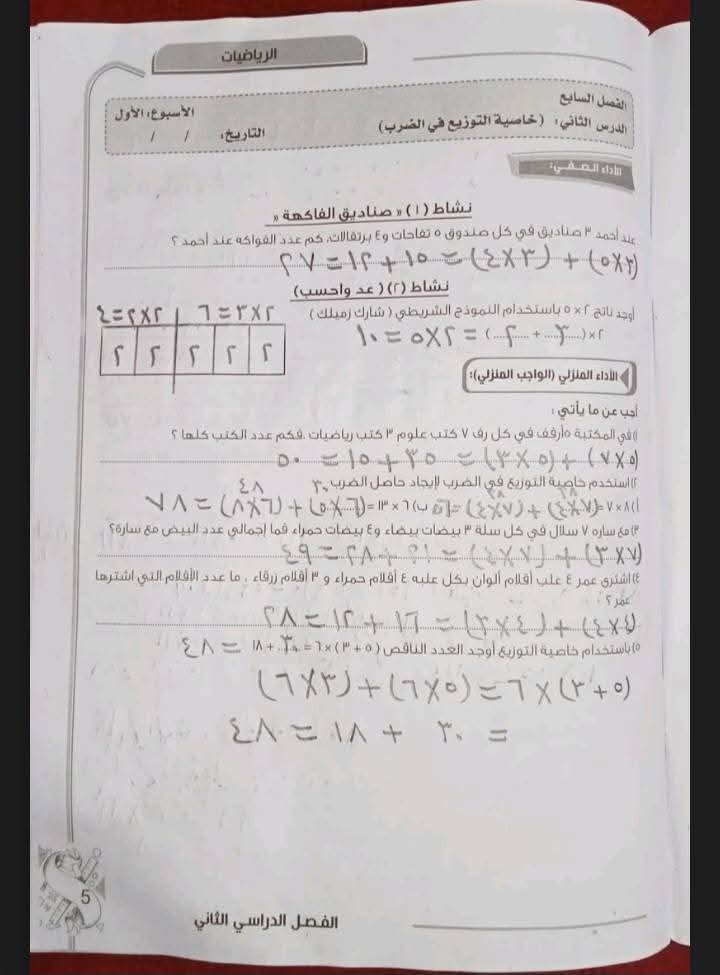 الرياضيات
الفصل السابع
الدرس الثاني: (خاصية التوزيع في الضرب)
الأسبوع: الأول
التاريخ: / /
الأداء الصفي:
نشاط (١) « صناديق الفاكهة »
عند أحمد ٣ صناديق في كل صندوق ٥ تفاحات و٤ برتقالات، كم عدد الفواكه عند أحمد ؟
(٣×٥) + (٣×٤) = ١٥ + ١٢ = ٢٧
نشاط (٢) ( عد واحسب)
أوجد ناتج ٢ × ٥ باستخدام النموذج الشريطي ( شارك زميلك )
٢×٣=٦ ٢×٢=٤
٢ ٢ ٢ ٢ ٢
٢ × (٣ + ٢) = ٢×٥ = ١٠
الأداء المنزلي (الواجب المنزلي):
أجب عن ما يأتي :
١) في المكتبة ٥ أرفف في كل رف ٧ كتب علوم ٣ كتب رياضيات. فكم عدد الكتب كلها ؟
(٥×٧) + (٥×٣) = ٣٥ + ١٥ = ٥٠
٢) استخدم خاصية التوزيع في الضرب لإيجاد حاصل الضرب
٣٠ ٤٨
أ) ٨ × ٧ = (٧×٤) + (٧×٤) = ٥٦ ب) ٦ × ١٣ = (٦×٥) + (٦×٨) = ٧٨
٢٨ ٢٨
٣) مع ساره ٧ سلال في كل سلة ٣ بيضات بيضاء و٤ بيضات حمراء فما إجمالي عدد البيض مع سارة؟
(٧×٣) + (٧×٤) = + ٢٨ = ٤٩
٤) اشترى عمر ٤ علب أقلام ألوان بكل علبه ٤ أقلام حمراء و ٣ أقلام زرقاء ، ما عدد الأقلام التي اشترها
عمر ؟
(٤×٤) + (٤×٣) = ١٦ + ١٢ = ٢٨
٥) باستخدام خاصية التوزيع أوجد العدد الناقص (٥ + ٣) × ٦ = ٣٠ + ١٨ = ٤٨
(٥ + ٣) × ٦ = (٥×٦) + (٣×٦)
= ٣٠ + ١٨ = ٤٨
5
الفصل الدراسي الثاني